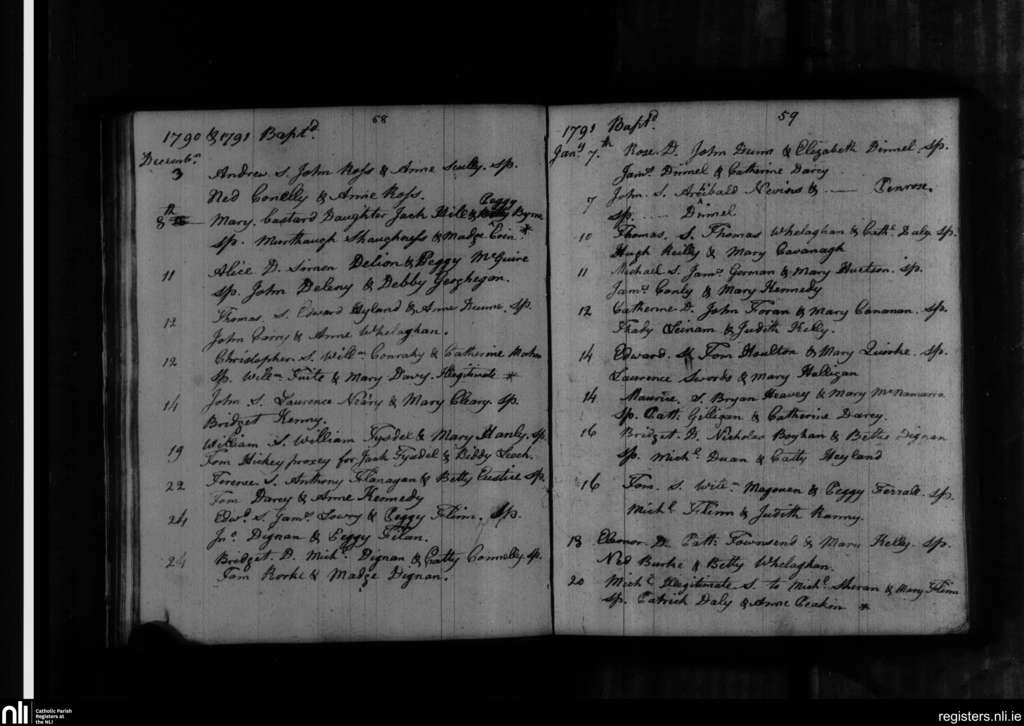 58
1790 & 1791 Baptd.
Decembr.
3 Andrew S. John Ross & Anne Scully. Sp.
Ned Conelly & Anne Ross.
8th Mary. Bastard Daughter Jack Hile & Peggy Byrne
Sp. Murthaugh Shaughness & Madge *
11 Alice D. Simon Delion & Peggy McGuire
Sp. John Deleny & Debby Geoghegan.
12 Thomas. S. Edward Hyland & Anne Dunne. Sp.
John & Anne Whelaghan.
12 Christopher. S. Willm. Conrahy & Catherine
Sp. Willm. Fuite & Mary Davy. Illegitimate *
14 John S. Laurence Neary & Mary Cleary. Sp.
Bridget Kenny.
19 William S. William Fysdel & Mary Hanly. Sp.
Tom Hickey proxey for Jack Fysdel & Biddy
22 Terence. S. Anthony Flanagan & Betty Sp.
Tom Darcy & Anne Kennedy
24 Edwd. S. Jams. Lowry & Peggy Flinn. Sp.
Jno. Dignan & Peggy
24 Bridget D. Michl. Dignan & Catty Connolly. Sp.
Tom Rorke & Madge Dignan.
59
1791 Baptd.
Jany. 7.th Rose. D. John Dunn & Elizabeth Dinnel. Sp.
Jams. Dinnel & Catherine Darcy
7 John. S. Archibald Nevins & —— Penrose.
Sp. ..... Dinnel
10 Thomas. S. Thomas Whelaghan & Cathe. Daly. Sp.
Hugh Reilly & Mary Cavanagh
11 Michael S. Jams. Gorman & Mary Sp.
Jams. Conly & Mary Kennedy
12 Catherine D. John Foran & Mary Cananan. Sp.
& Judith Kelly.
14 Edward. S. Tom Houlton & Mary Quirke. Sp.
Laurence Swords & Mary Halligan
14 Maurice. S. Bryan Heavey & Mary McNamarra
Sp. Patt. Gilligan & Catherine Darcy.
16 Bridget. D. Nicholas Boyhan & Bettie Dignan
Sp. Michl. Duan & Catty Heyland
16 Tom. S. Willm. & Peggy Ferrall. Sp.
Michl. Flinn & Judith Ranny.
18 Eleonor. D. Patt. Townsend & Mary Kelly. Sp.
Ned Burke & Betty Whelaghan.
20 Michl. Illegitimate S. to Michl. Sheran & Mary Flinn
Sp. Patrick Daly & Anne Peakin *
nli
Catholic Parish
Registers at
the NLI
registers.nli.ie